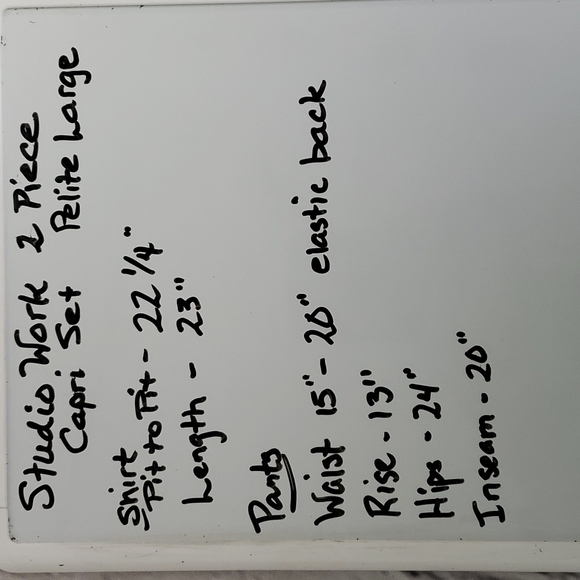 Studio Work 2 Piece
Capri Set Petite Large
Shirt
Pit to Pit - 22 1/4"
Length - 23"
Pants
Waist 15" - 20" elastic back
Rise - 13"
Hips - 24"
Inseam - 20"